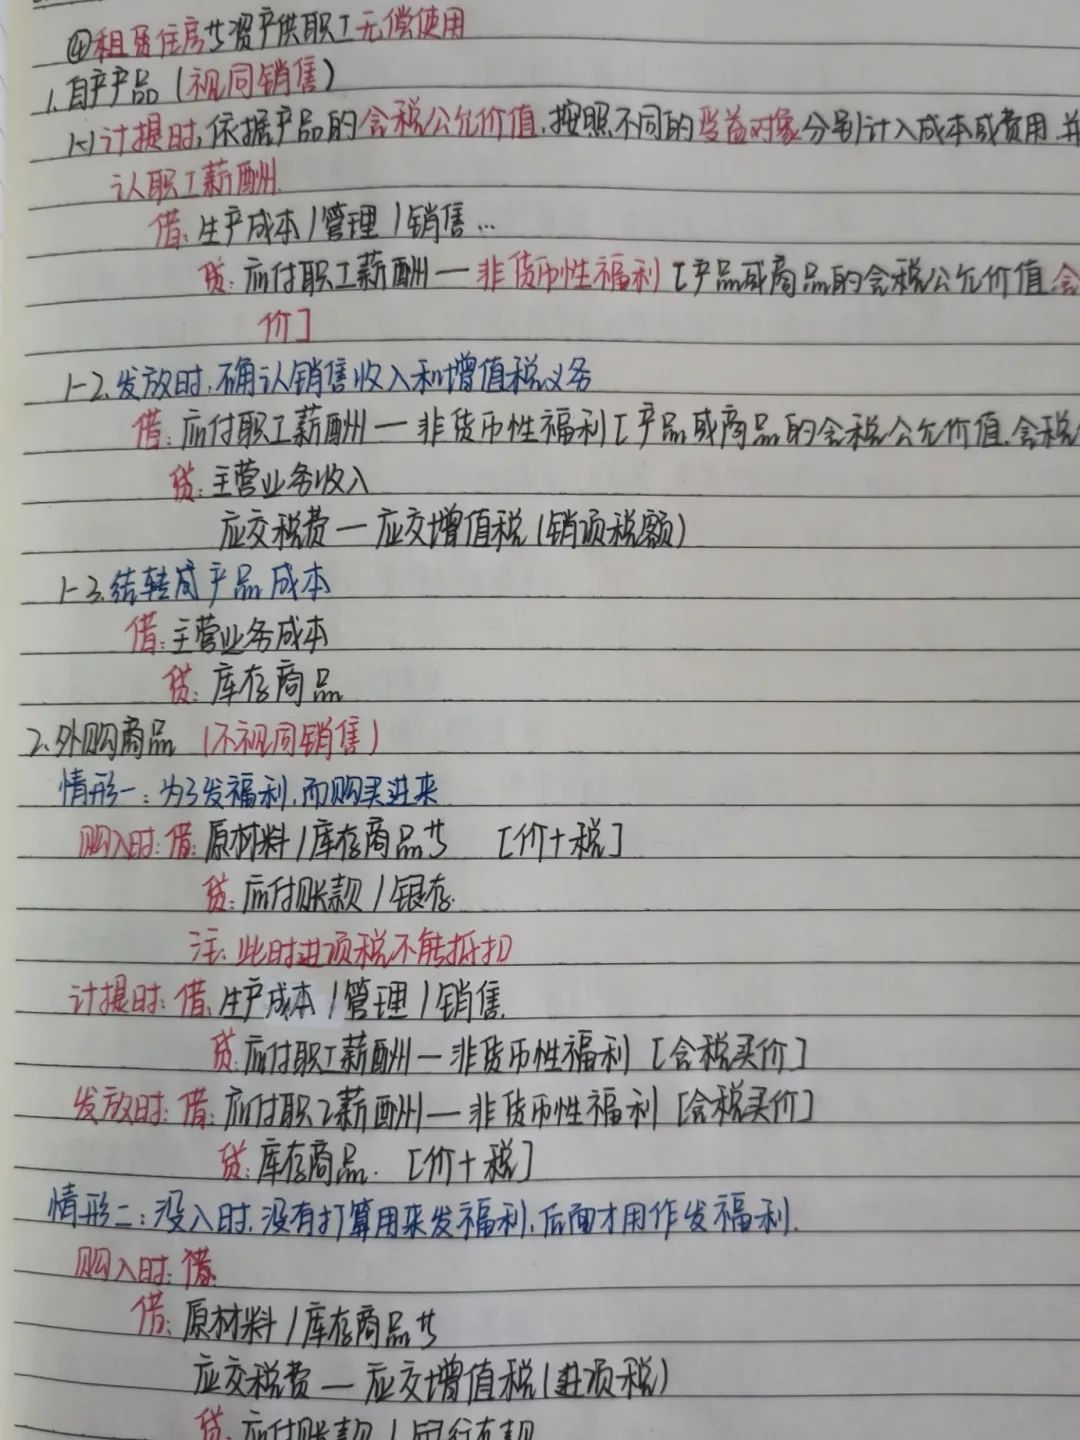 ④租赁住房等资产供职工无偿使用
1.自产产品(视同销售)
1-1计提时,依据产品的含税公允价值,按照不同的受益对象分别计入成本或费用,并
认职工薪酬.
借:生产成本/管理/销售…
贷:应付职工薪酬—非货币性福利[产品或商品的含税公允价值,含
价]
1-2.发放时.确认销售收入和增值税义务
借:应付职工薪酬—非货币性福利[产品或商品的含税公允价值.含税
贷:主营业务收入
应交税费—应交增值税(销项税额)
1-3.结转成产品成本
借:主营业务成本
贷:库存商品
2.外购商品(不视同销售)
情形一:为了发福利,而购买进来
购入时:借:原材料/库存商品等 [价+税]
贷:应付账款/银存.
注:此时进项税不能抵扣
计提时:借:生产成本/管理/销售.
贷:应付职工薪酬—非货币性福利[含税买价]
发放时:借:应付职工薪酬—非货币性福利[含税买价]
贷:库存商品. [价+税]
情形二:没入时.没有打算用来发福利,后面才用作发福利.
购入时:借:
借:原材料/库存商品等
应交税费—应交增值税(进项税)
贷:应付账款/银行存款